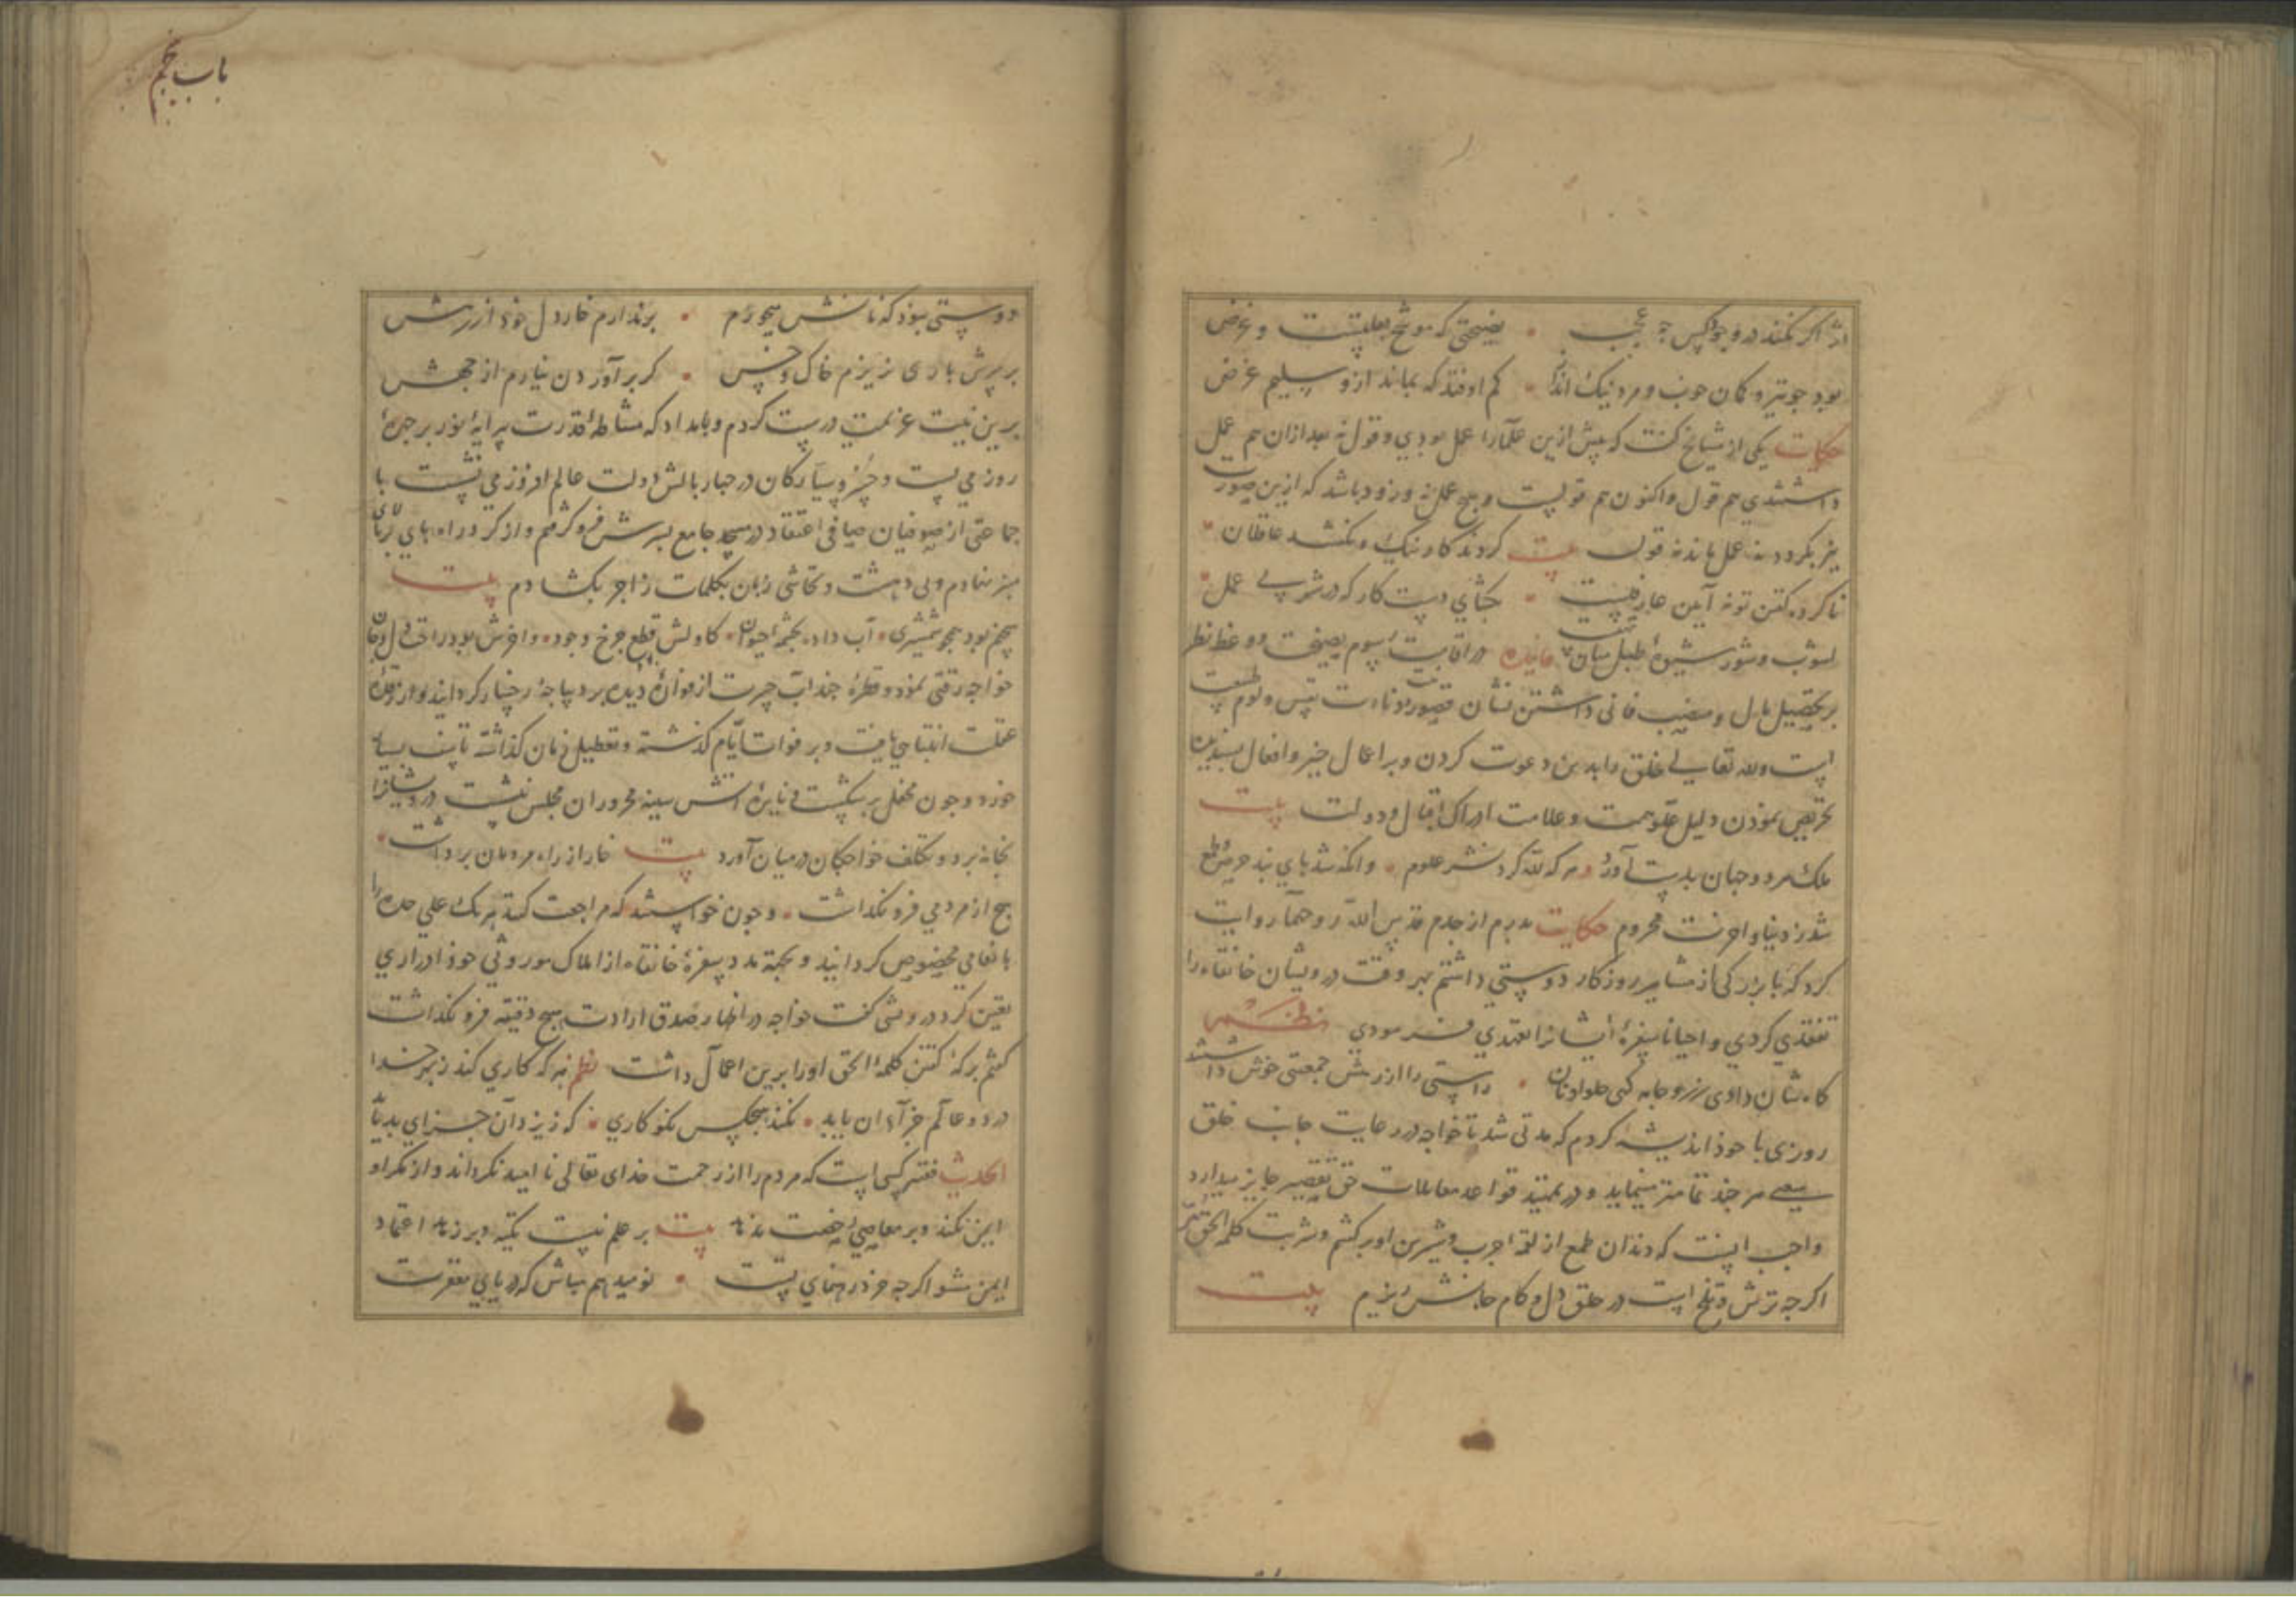 اثر اگر نکند در وجود کس چه عجب • نصیحتی که موشح بعلتست و غرض
بود چو تیر و کمان خوب و مرد نیک انداز • کم اوفتد که بماند ازو سلیم غرض
حکایت یکی از مشایخ گفت که پیش ازین علما را عمل بودی و قول نه بعد ازان هم عمل
داشتندی هم قول و اکنون هم قولست و هیچ عمل نه و زود باشد که ازین صورت
نیز بگردد نه عمل ماند نه قول بیت کردند کار نیک و نگفتند عاقلان •
ناکرده گفتن تو نه آیین عارفیست • بگشای دست کار که در شرب بی عمل •
آشوب و شور شیوهٔ طبل میان فایده در اقامت رسوم نصیحت و وعظ نظر
بر تحصیل مال و منصب فانی داشتن نشان قصور و دناءت نفس و لوم طبیعت
است ولله تعالی خلق را بدین دعوت کردن و بر اعمال خیر و افعال پسندیده
تحریض نمودن دلیل علو همت و علامت ادراک اقبال و دولت بیت
ملک هر دو جهان بدست آورد هر که لله کرد نشر علوم • وانکه شد پای بند حرص و طمع
شد ز دنیا و آخرت محروم حکایت پدرم از جدم قدس الله روحهما روایت
کرد که با بزرگی از مشاهیر روزگار دوستی داشتم بهر وقت درویشان خانقاه را
تفقدی کردی و احیانا سفرهٔ ایشانرا تعهدی فرمودی نظم
گاهشان دادی زر و جامه گهی حلوا و نان • راستی را از زرش جمعیتی خوش داشتند
روزی با خود اندیشه کردم که مدتی شد تا خواجه در رعایت جانب خلق
سعی هر چند تمامتر مینماید و در تمهید قواعد معاملات حق تقصیر جایز میدارد
واجب آنست که دندان طمع از لقمهٔ چرب و شیرین او برکنم و شربت کلمة الحق
اگر چه ترش و تلخ است در حلق دل و کام جانش ریزم بیت
دوستی نبود که نانش میخورم • برندارم خار دل خود از رهش
بر سرش باری نریزم خاک و خس • گر برآوردن نیارم از چهش
برین نیت عزیمت درست کردم و بامداد که مشاطهٔ قدرت پیرایهٔ نور بر چهرهٔ
روز می بست و خسرو سیارگان در چاربالش دولت عالم افروز می نشست با
جماعتی از صوفیان صافی اعتقاد در مسجد جامع بسرش فرو گرفتم و از گرد راه پای بر بالای
منبر نهادم و بی دهشت و تحاشی زبان بکلمات زاجر بگشادم بیت
سخنم بود همچو شمشیری • آب داده بچشمهٔ حیوان • کاولش قطع چرخ وجود • و آخرش بود راحت دل و جان
خواجه رقتی نمود و قطرهٔ چند آب حسرت از فوارهٔ دیده بر دیباجهٔ رخسار گردانید و از رقدهٔ
غفلت انتباهی یافت و بر فوات ایام گذشته و تعطیل زمان گذاشته تاسف بسیار
خورد و چون محفل بر شکست و نایرهٔ آتش سینه محروران مجلس نشست درویشانرا
بخانه برد و تکلف خواجگان در میان آورد بیت خار از راه مردمان برداشت •
هیچ از مردمی فرو نگذاشت • و چون خواستند که مراجعت کنند هر یک علی حده را
بانعامی مخصوص گردانید و بجهة مدد سفرهٔ خانقاه از املاک موروثی خود ادراری
تعیین کرد درویشی گفت خواجه در اظهار صدق ارادت هیچ دقیقه فرو نگذاشت
گفتم برکهٔ گفتن کلمة الحق او را برین اعمال داشت نظم هر که کاری کند ز بهر خدا
در دو عالم جزای آن یابد • نکند هیچکس نکو کاری • که ز یزدان جزای بد یابد
الحدیث فقیه کسی است که مردم را از رحمت خدای تعالی ناامید نگرداند و از مکر او
ایمن نکند و بر معاصی رخصت ندهد بیت بر علم نیست تکیه و بر زهد اعتماد
ایمن مشو اگر چه خرد رهنمای تست • نومید هم مباش که دریای مغفرت
باب پنجم